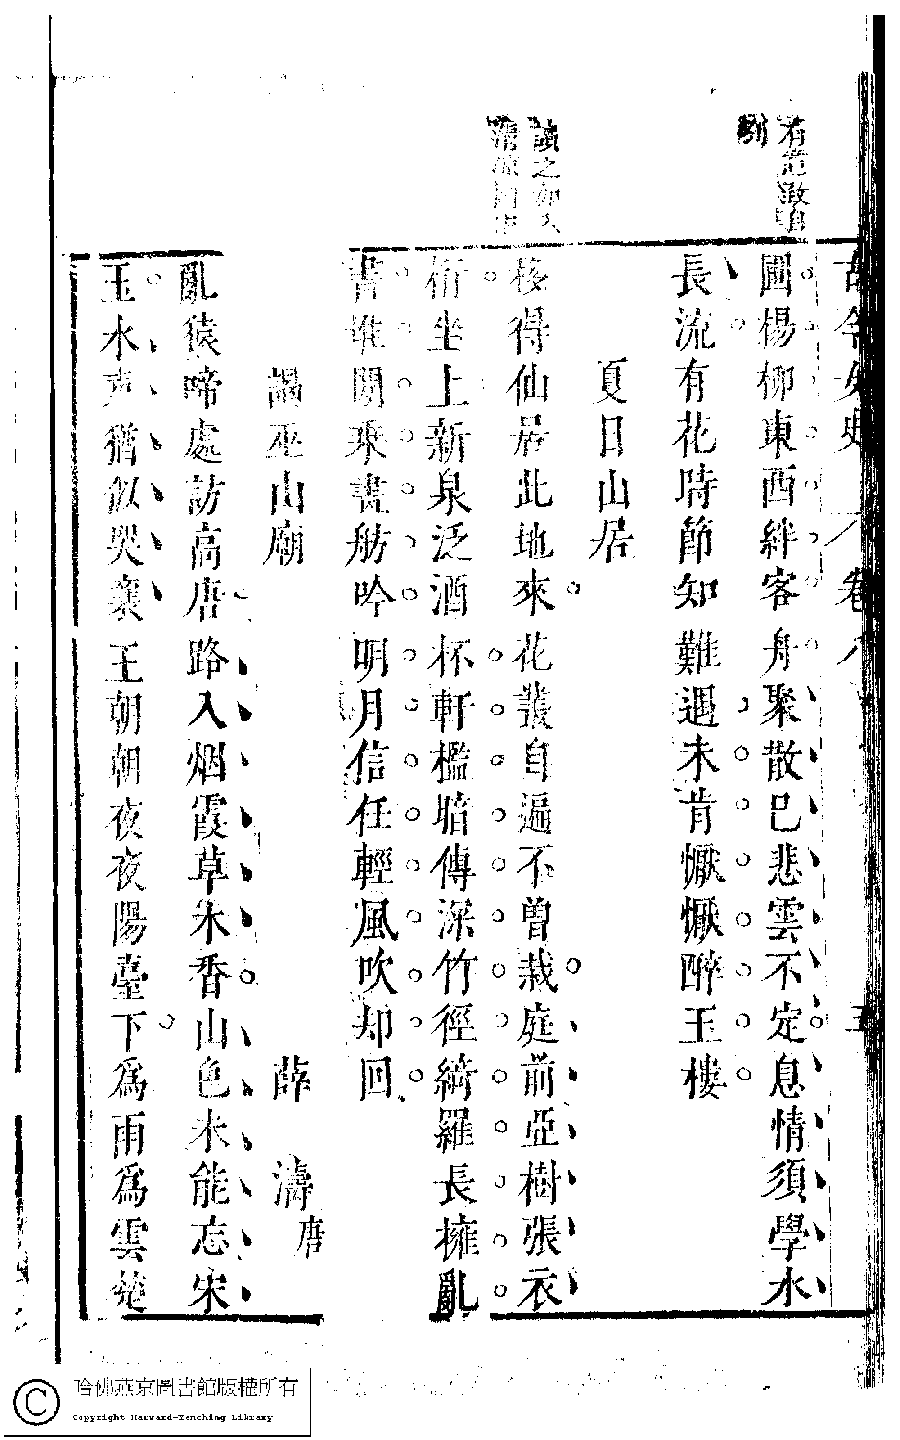 古今女史
卷八
五
圃楊柳東西絆客舟聚散巳悲雲不定息情須學水
長流有花時節知難遇未肯懨懨醉玉樓
夏日山居
移得仙居此地來花叢自遍不曾栽庭前亞樹張衣
桁坐上新泉泛酒杯軒檻暗傳深竹徑綺羅長擁亂
書堆閒乘畫舫吟明月信任輕風吹却回
謁巫山廟
薛濤
唐
亂猿啼處訪高唐路入烟霞草木香山色未能忘宋
玉水声猶似哭襄王朝朝夜夜陽臺下為雨為雲楚
讀之如入
哈佛燕京圖書館版權所有
Copyright Harvard-Yenching Library